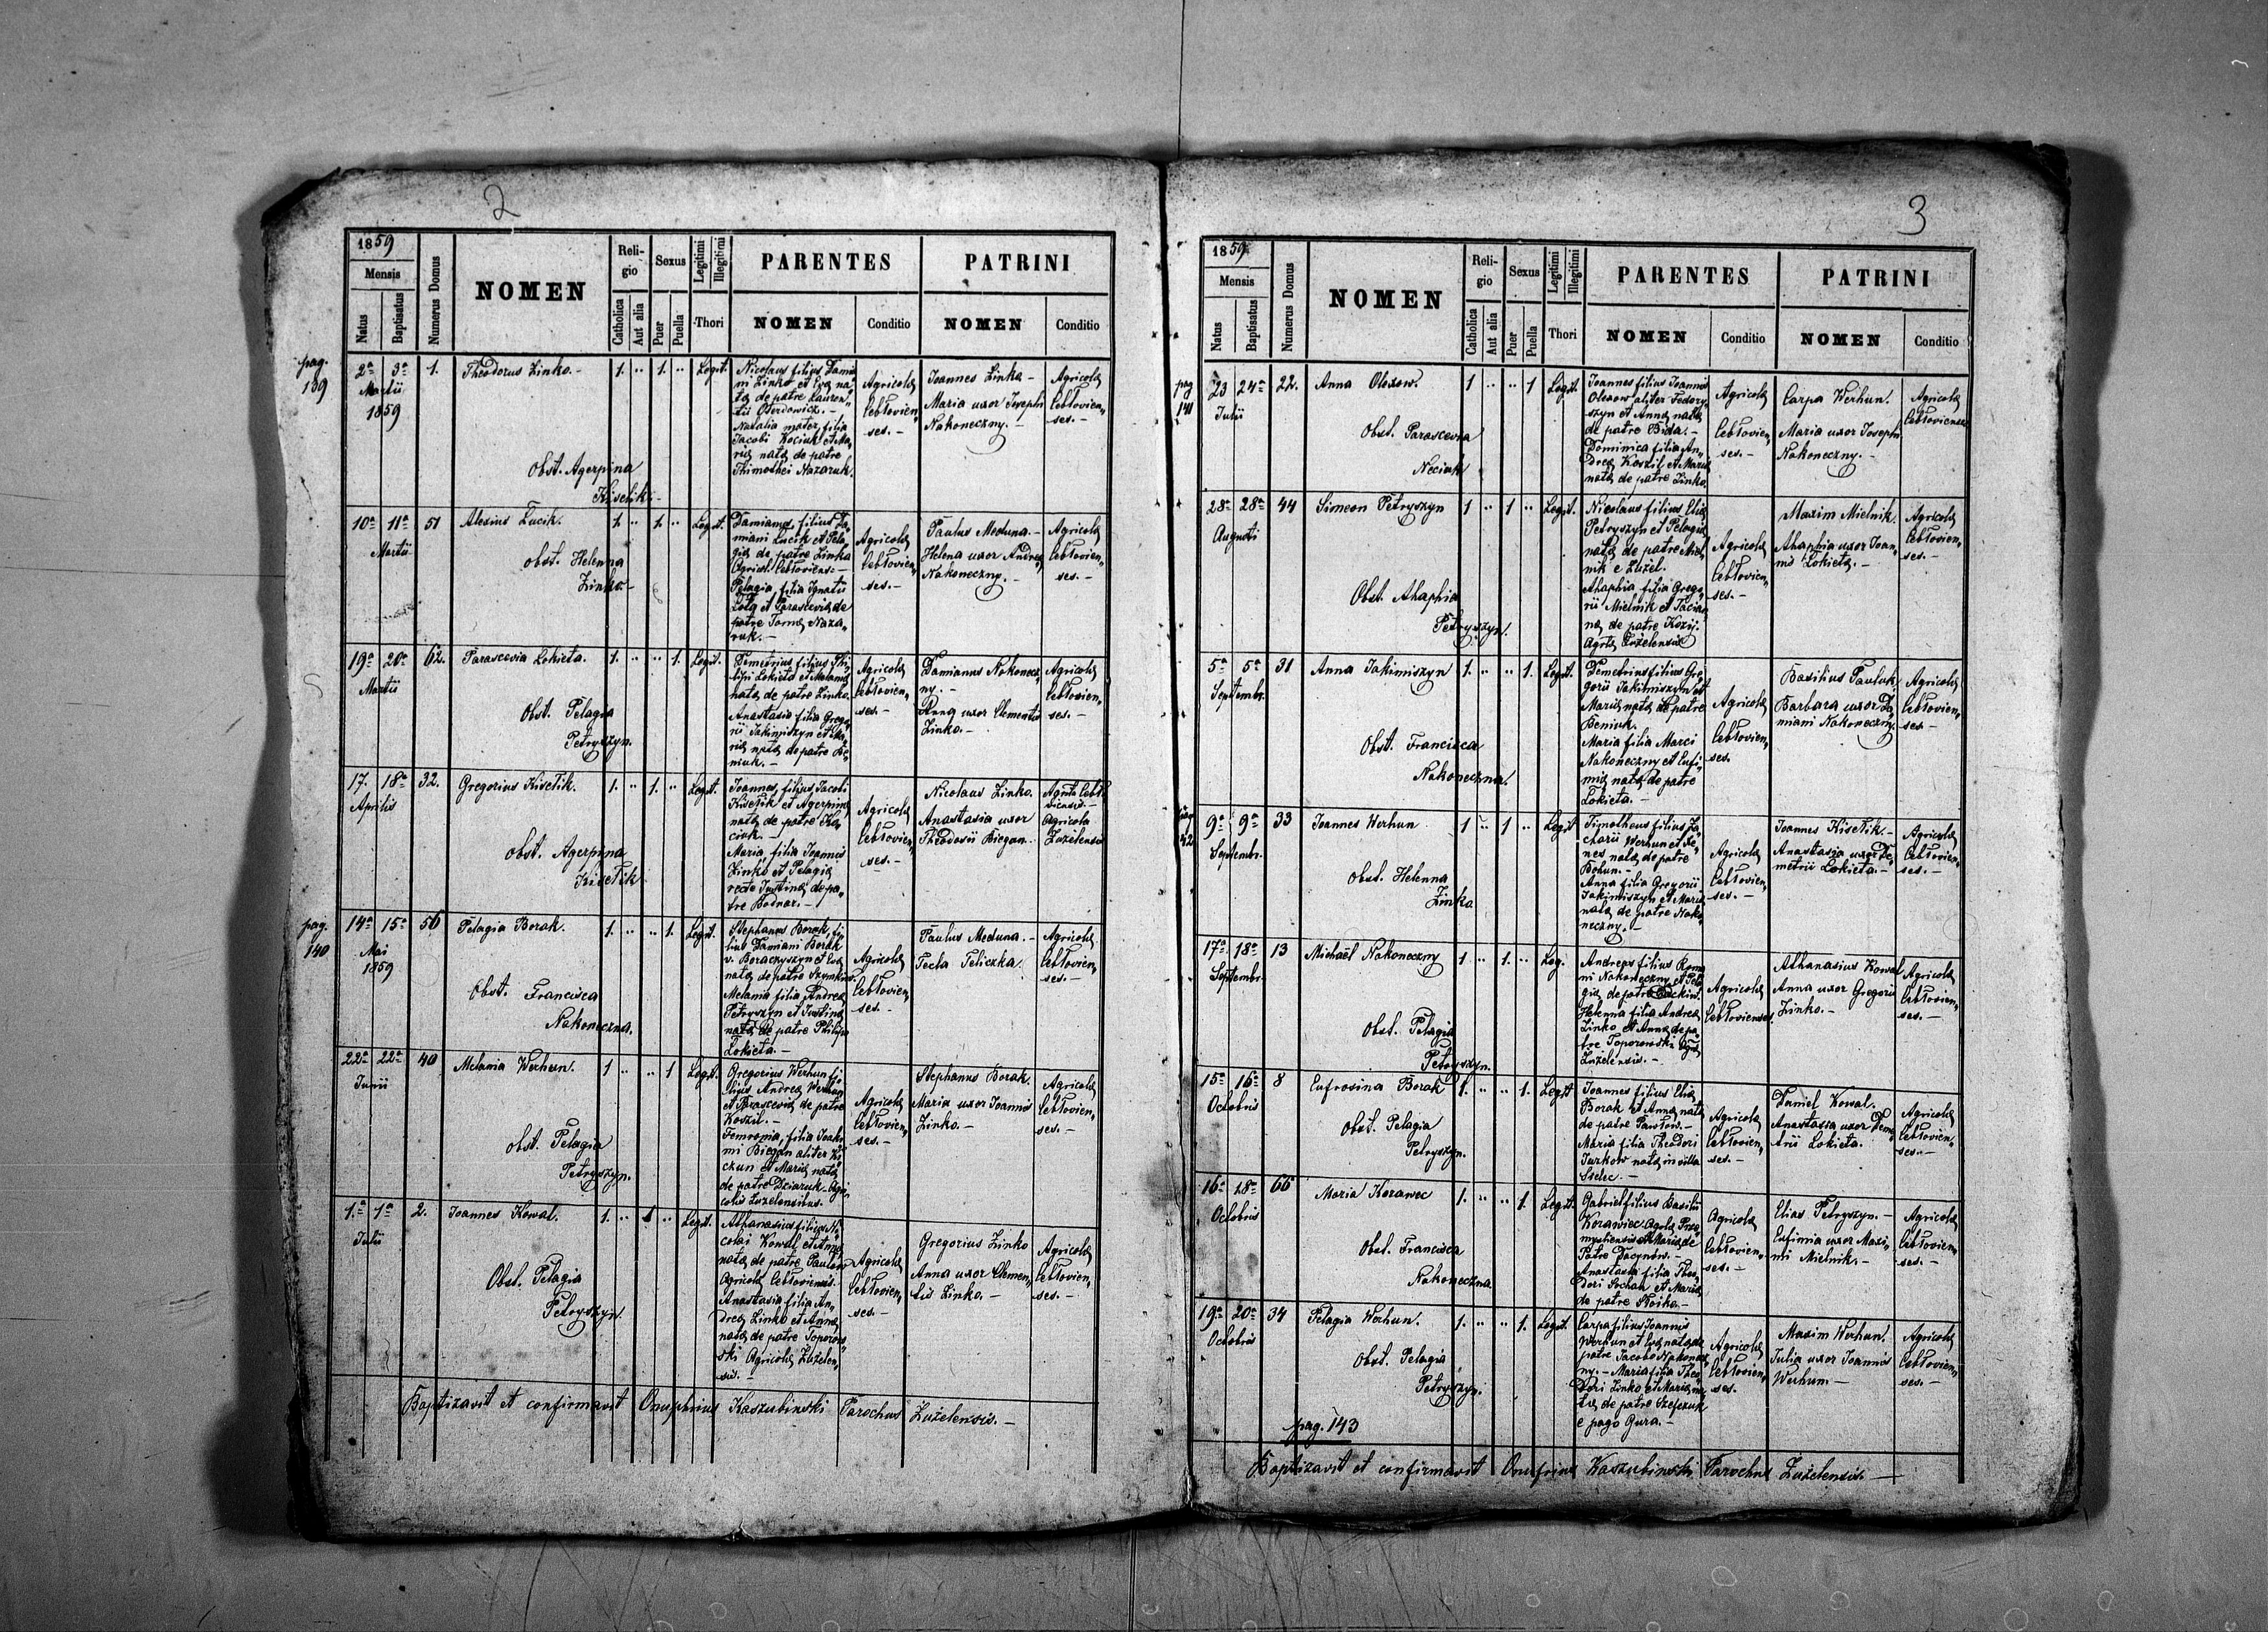 2
1859
Mensis
Natus
Baptisatus
Numerus Domus
NOMEN
Reli-
gio
Catholica
Aut alia
Sexus
Puer
Puella
Legitimi
Illegitimi
Thori
PARENTES
NOMEN
Conditio
PATRINI
NOMEN
Conditio
pag.
139
2a 3a
Martii
1859
1.
Theodorus Zinko.-
Obst. Agerpina
Kiselik.-
1. .. 1. ..
Legit.
Nicolaus filius Dami-
ni Zinko et Eva na-
ta de patre Lauren-
tii Oterdowicz.-
Natalia mater, filia
Jacobi Kociuk et Ma-
ria nata de patre
Thimothei Nazaruk.
Agricola
Cebłovien-
ses.-
Joannes Zinko-
Maria uxor Josephi
Nakoneczny.-
Agricola
Cebłovien-
ses.-
10a 11a
Martii
51
Alexius Łucik.
Obst. Helenna
Zinko.-
1. .. 1. ..
Legit.
Damianus filius Da-
miani Łucik et Pela-
gia de patre Zinko
Agricol. Cebłoviens.-
Pelagia, filia Ignatii
et Parascevia de
patre Toma Naza-
ruk.-
Agricola
Cebłovien-
ses.-
Paulus Meduna.-
Helena uxor Andrea
Nakoneczny.-
Agricola
Cebłovien-
ses.-
19a 20a
Martii
62.
Parascevia Łokieta.
Obst. Pelagia
Petryszyn.
1. .. .. 1.
Legit.
Demetrius filius Phi-
lipi Łokieta et Melania
nata de patre Zinko.
Anastasia filia Grego-
rii Jakimiszyn et Ma-
ria nata de patre Be-
niuk.-
Agricola
Cebłovien-
ses.-
Damianus Nakonecz-
ny.-
Anna uxor Clementis
Zinko.-
Agricola
Cebłovien-
ses.-
17. 18a
Aprilis
32.
Gregorius Kisełik.
Obst. Agerpina
Kisełik
1. .. 1. ..
Legit.
Joannes, filius Jacobi
Kisełik et Agerpina
nata de patre Ko-
ciuk.-
Maria, filia Joannis
Zinko et Pelagia
recte Justina de pa-
tre Bodnar.-
Agricola
Cebłovien-
ses.-
Nicolaus Zinko.
Anastasia uxor
Theodosii Biegan.
Agrcola Cebło-
viensis.-
Agricola
Żużelensis
pag.
140
14a 15a
Mai
1859
56
Pelagia Borak.
Obst. Francisca
Nakoneczna.
1. .. .. 1.
Legit.
Stephanus Borak, fi-
lius Damiani Borak
v. Boraczyszyn et Eva
nata de patre Szynkiw.
Melania filia Andrea
Petryszyn et Justina
nata de patre Philipa
Łokieta.-
Agricola
Cebłovien-
ses.-
Paulus Meduna.-
Tecla Teliczka.
Agricola
Cebłovien-
ses.-
22a 22a
Junii
40
Melania Werhun.
Obst. Pelagia
Petryszyn.
1 .. .. 1
Legit.
Gregorius Werhun fi-
lius Andrea Werhun
et Parascevia de patre
Koszil.-
Femronia, filia Joaki-
mi Biegan aliter Ki-
czun et Maria nata
de patre Dziaruk- Agri-
colis Żużelensibus.
Agricola
Cebłovien-
ses.-
Stephanus Borak.
Maria uxor Joannis
Zinko.-
Agricola
Cebłovien-
ses.-
1.a 1a
Julii
2.
Joannes Kowal.
Obst. Pelagia
Petryszyn
1. .. 1 ..
Legit.
Athanasius filius Ni-
colai Kowal et Anna
nata de patre Paulow
Agricola Cebłoviensis.
Anastasia filia An-
drea Zinko et Anna
nata de patre Toporow-
ski Agricola Żużelen-
sis.-
Agricola
Cebłovien-
ses.-
Gregorius Zinko
Anna uxor Clemen-
tis Zinko.-
Agricola
Cebłovien-
ses.-
Baptizavit et confirmavit Onuphrius Kaszubinski Parochus Żużelensis.-
3
1859.
Mensis
Natus
Baptisatus
Numerus Domus
NOMEN
Reli-
gio
Catholica
Aut alia
Sexus
Puer
Puella
Legitimi
Illegitimi
Thori
PARENTES
NOMEN
Conditio
PATRINI
NOMEN
Conditio
pag
141
23 24a
Julii
22.
Anna Olexow.
Obst. Parascevia
Neciuk
1 .. .. 1
Legit.
Joannes filius Joannis
Olexow aliter Fedory-
szyn et Anna nata
de patre Bida.-
Dominica filia An-
drea Koszil et Maria
nata de patre Zinko.
Agricola
Cebłovien-
ses.-
Carpa Werhun.
Maria uxor Josephi
Nakoneczny.-
Agricola
Cebłovienses
28a 28a
Augusti
44
Simeon Petryszyn
Obst. Ahaphia
Petryszyn.
1 .. 1 ..
Legit.
Nicolaus filius Elia
Petryszyn et Pelagia
nata de patre Miel-
nik e Żużel.
Ahaphia filia Grego-
rii Mielnik et Tacian-
na de patre Kozij.
Agrla Żużelensis
Agricola
Cebłovien-
ses.-
Maxim Mielnik.
Ahaphia uxor Joan-
nis Łokieta.-
Agricola
Cebłovien-
ses.-
5a 5a
Septembr.
31
Anna Jakimiszyn
Obst. Francisca
Nakoneczna.
1. .. .. 1.
Legit.
Demetrius filius Gre-
gorii Jakimiszyn et
Maria nata de patre
Beniuk.
Maria filia Marci
Nakoneczny et Eufi-
mia nata de patre
Łokieta.-
Agricola
Cebłovien-
ses
Basilius Pauluk
Barbara uxor Da-
miani Nakoneczny.
Agricola
Cebłovien-
ses.-
pag
142
9a 9a
Septembr.
33
Joannes Werhun
Obst. Helenna
Zinko
1 .. 1 ..
Legit
Timotheus filius Za-
charii Werhun et Xe-
nia nata de patre
Bohun.-
Anna filia Gregorii
Jakimiszyn et Maria
nata de patre Nako-
neczny.-
Agricola
Cebłovien-
ses.-
Joannes Kisełik.-
Anastasia uxor De-
metrii Łokieta.-
Agricola
Cebłovien-
ses.-
17a 18a
Septembr.
13
Michaël Nakoneczny
Obst. Pelagia
Petryszyn.
1 .. 1. ..
Leg.
Andreas filius Roma-
ni Nakoneczny et Pela-
gia de patre
Helenna filia Andrea
Zinko et Anna de pa-
tre Toporowski Agrla
Żużelensis.-
Agricola
Cebłovienses.
Athanasius Kowal
Anna uxor Gregorii
Zinko.-
Agricola
Cebłovien-
ses.-
15a 16a
Octobris
8
Eufrosina Borak
Obst. Pelagia
Petryszyn.
1. .. .. 1.
Legit
Joannes filius Elia
Borak et Anna nata
de patre Pawłow.-
Maria filia Theodori
Jurkow nata in villa
Sielec.-
Agricola
Cebłovien-
ses.-
Daniel Kowal.
Anastasia uxor Deme-
trii Łokieta.
Agricola
Cebłovien-
ses.-
16a 18a
Octobris
66
Maria Korawec
Obst. Francisca
Nakoneczna
1. .. .. 1.
Legit.
Gabriel filius Basilii
Korawiec Agrla Prze-
mysliensis et Maria de
Patre Dacynow.-
Anastasia filia Theo-
dori Sochan et Maria
de patre Stoika.-
Agricola
Cebłovien-
ses.-
Elias Petryszyn.-
Eufimia uxor Maxi-
mi Mielnik.-
Agricola
Cebłovien-
ses.-
19a 20a
Octobris
34
Pelagia Werhun.
Obst. Pelagia
Petryszyn.
1. .. .. 1.
Legit.
Carpa filius Joannis
Werhun et Eva nata de
patre Jacobo Nakonecz-
ny.- Maria filia Theo-
dori Zinko et Maria na-
ta de patre Szefczuk
e pago Gura.-
Agricola
Cebłovien-
ses.
Maxim Werhun.
Julia uxor Joannis
Werhun-
Agricola
Cebłovien-
ses.-
pag. 143
Baptizavit et confirmavit Onufrius Kaszubinski Parochus Żużelensis.-